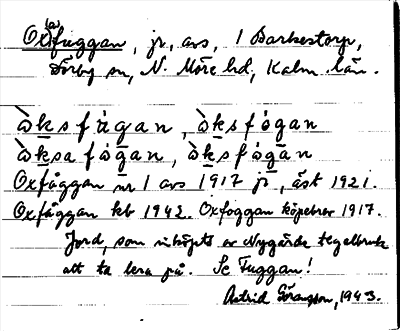 Ox(a)fuggan, jr, avs, 1 Barkestorp,
Dörby sn, N. Möre hd, Kalm. län.
àksfågan, àksfógan
àksafågan, àksfågan
Oxfåggan nr 1 avs 1917 jr, äst 1921.
Oxfåggan kb 1942. Oxfoggan köpebrev 1917.
Jord, som inköpts av Nygärde tegelbruk
att ta lera på. Se Fuggan!
Astrid Göransson, 1943.